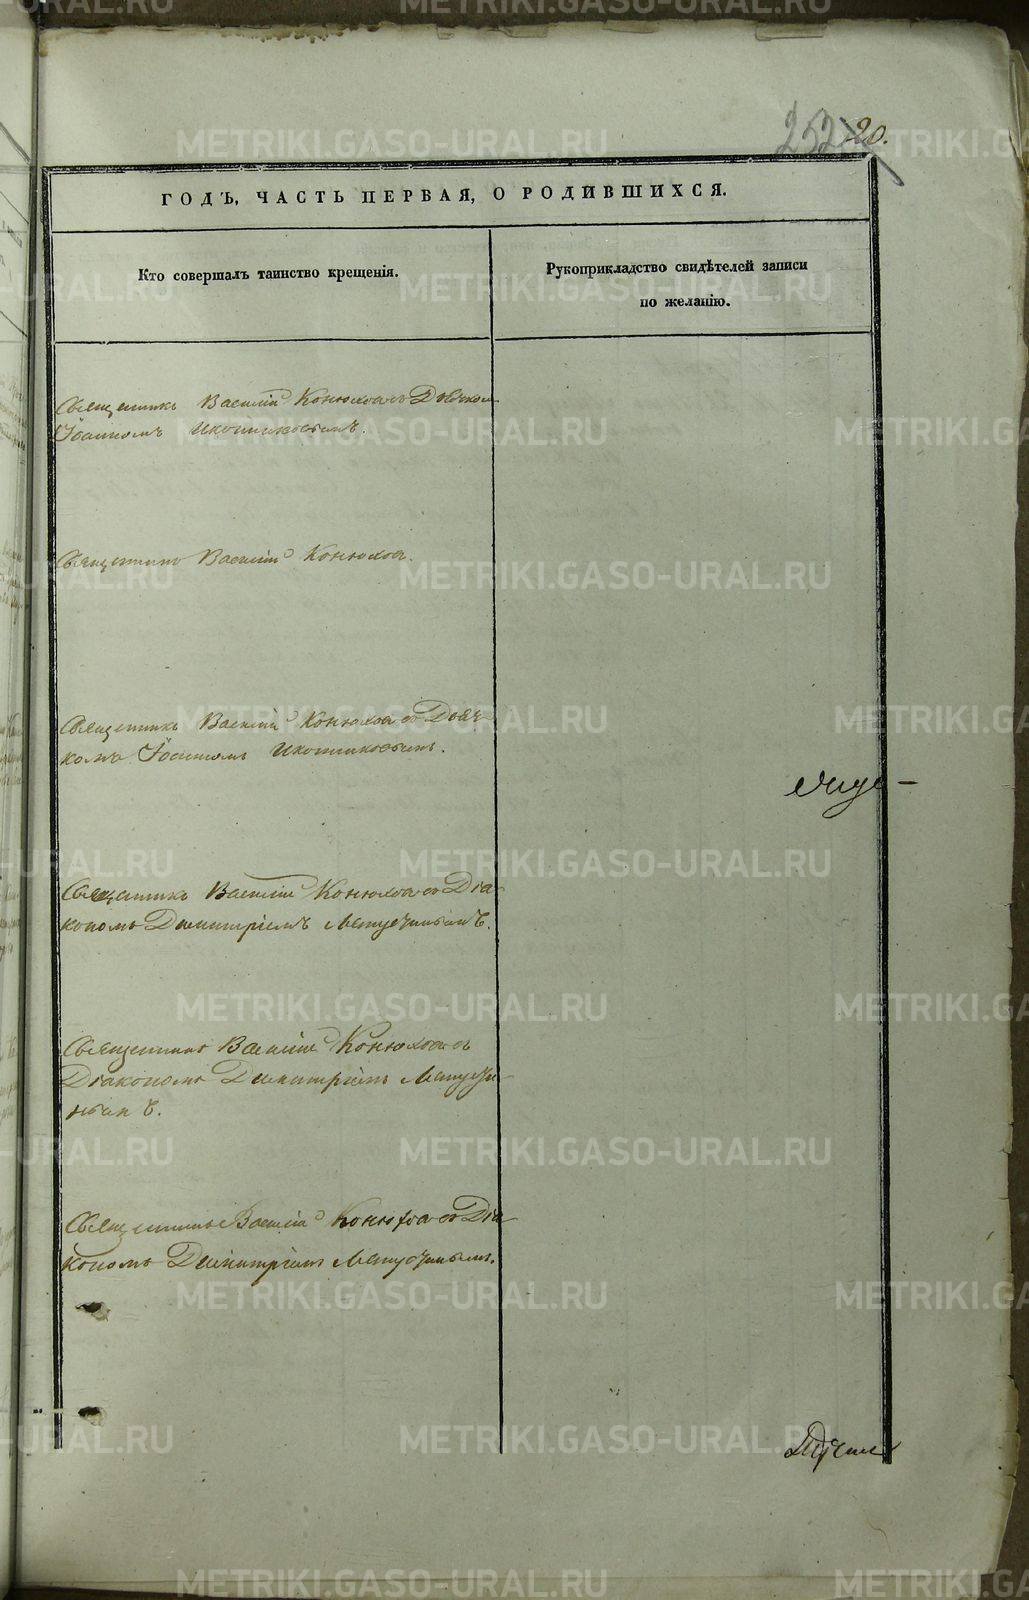 252 20.
ГОДЪ, ЧАСТЬ ПЕРВАЯ, О РОДИВШИХСЯ.
Кто совершалъ таинство крещенія.
Рукоприкладство свидѣтелей записи
по желанію.
Священникъ Василій Конюховъ съ Дьячком
Іоанномъ Иконниковымъ.
Священникъ Василій Конюхов.
Священникъ Василій Конюхов съ Дьяч-
комъ Іоанном Иконниковымъ.
Священникъ Василій Конюховъ съ Діа-
кономъ Димитріемъ
Священникъ Василій Конюховъ съ
Діакономъ Димитріемъ
Священникъ Василій Конюховъ съ Діа-
кономъ Димитріемъ
METRIKI.GASO-URAL.RU